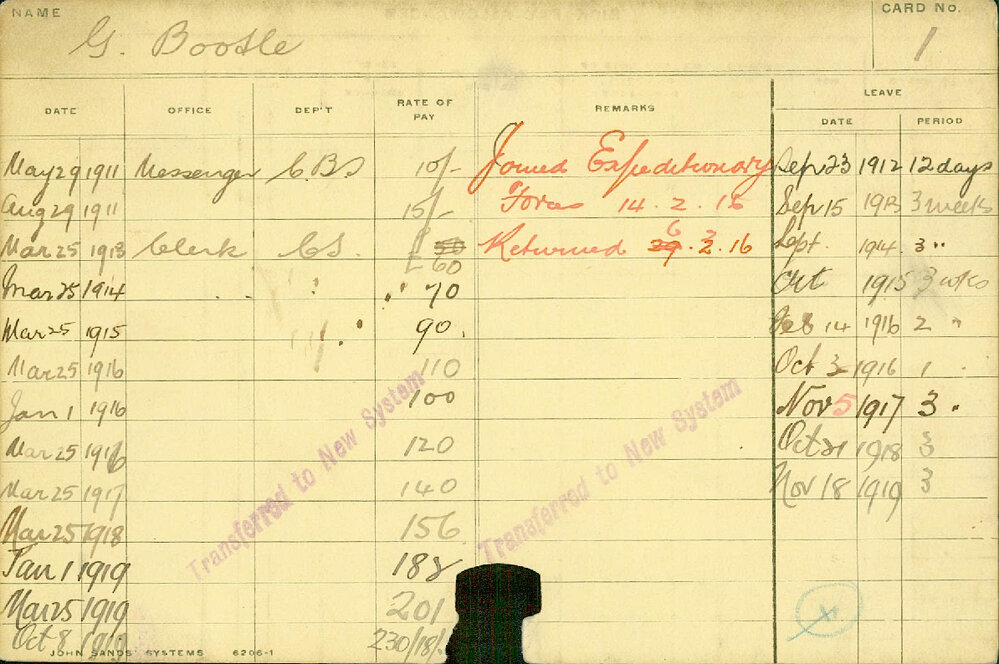 NAME CARD No.
G. Bootle 1
DATE OFFICE DEP'T RATE OF PAY REMARKS LEAVE
DATE PERIOD
May 29 1911 Messenger C.B.S 10/- Joined Expeditionary Sep 23 1912 12 days
Aug 29 1911 15/- Force 14.2.16 Sep 15 1913 3 weeks
Mar 25 1913 Clerk C.S. £ 50 60 Returned 29 6.2.16 3 Sept. 1914 3 "
Mar 25 1914 " " " 70 Oct 1915 3 wks
Mar 25 1915 " 90 Feb 14 1916 2 "
Mar 25 1916 110 Oct 3 1916 1
Jan 1 1916 100 Nov 5 1917 3 "
Mar 25 1916 120 Oct 21 1918 3
Mar 25 1917 140 Nov 18 1919 3
Mar 25 1918 156
Jan 1 1919 188
Mar 25 1919 201
Oct 8 1919 230/18/
Transferred to New System
Transferred to New System
JOHN SANDS SYSTEMS 6206-1